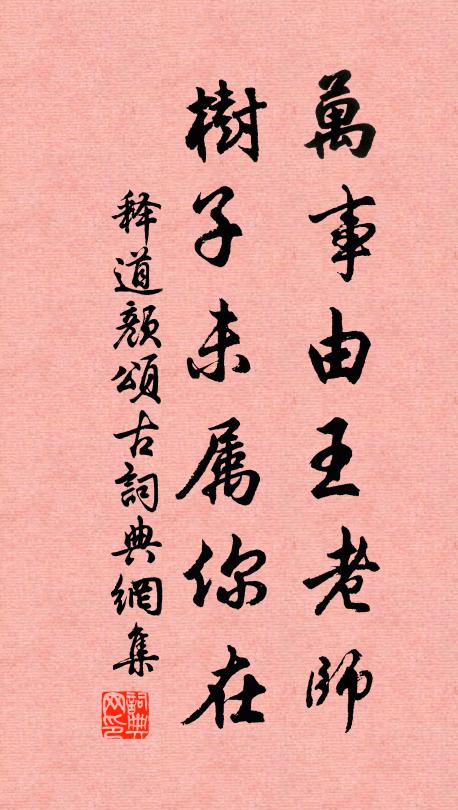 萬事由王老師
樹子未属你在
释道颜頌古詞典網集
詞典网印